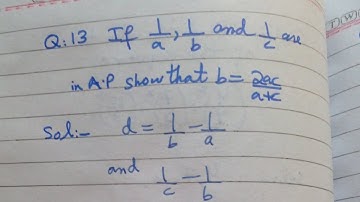 Q:13 If 1/a, 1/b and 1/c are
in A.P show that b = 2ac/a+c
Sol:- d = 1/b - 1/a
and 1/c - 1/b